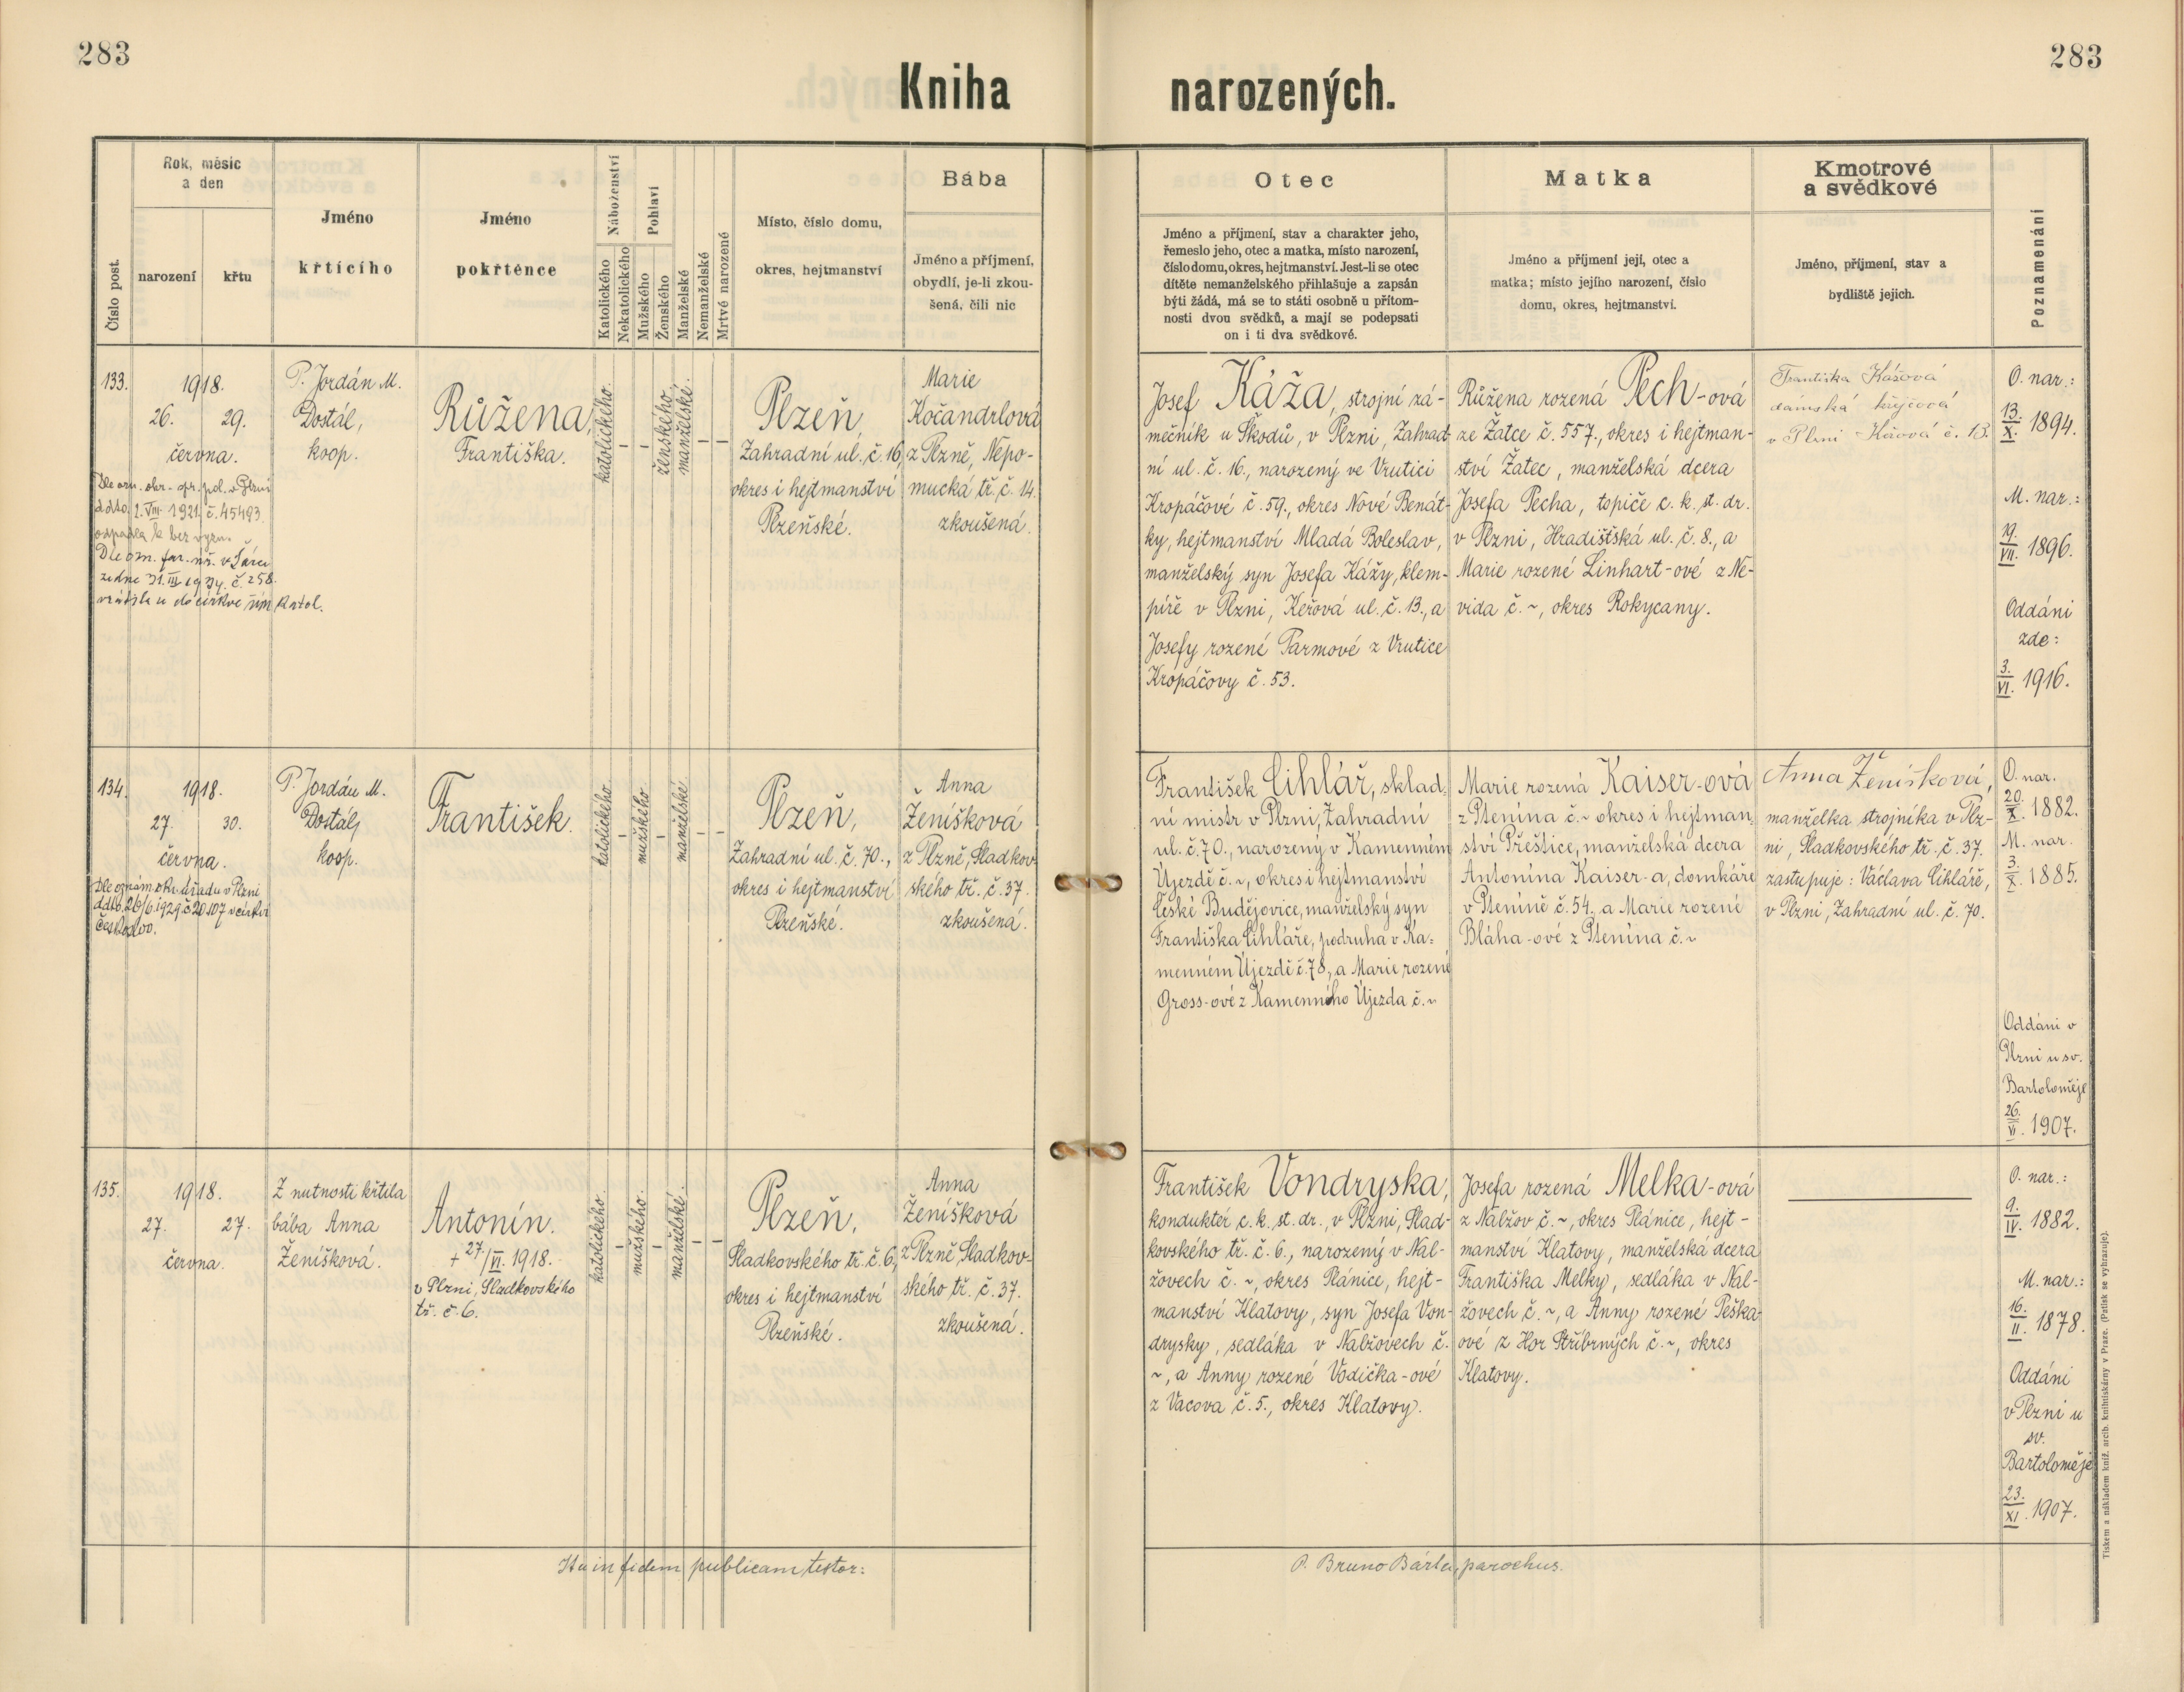 283
283
Kniha narozených.
Číslo post.
Rok, měsíc
a den
narození
křtu
Jméno
křtícího
Jméno
pokřtěnce
Náboženství
Katolického
Nekatolického
Pohlaví
Mužského
Ženského
Manželské
Nemanželské
Mrtvě narozené
Místo, číslo domu,
okres, hejtmanství
Bába
Jméno a příjmení,
obydlí, je-li zkou-
šená, čili nic
Otec
Jméno a příjmení, stav a charakter jeho,
řemeslo jeho, otec a matka, místo narození,
číslo domu, okres, hejtmanství. Jest-li se otec
dítěte nemanželského přihlašuje a zapsán
býti žádá, má se to státi osobně u přítom-
nosti dvou svědků, a mají se podepsati
on i ti dva svědkové.
Matka
Jméno a příjmení její, otec a
matka; místo jejího narození, číslo
domu, okres, hejtmanství.
Kmotrové
a svědkové
Jméno, příjmení, stav a
bydliště jejich.
Poznamenání
133.
1918.
26. 29.
června.
Dle ozn. okr. spr. pol. v Plzni
ddto. 2. VIII. 1921. č. 45493.
odpadla k bez vyzn.
Dle ozn. far. úř. v Šárce
ze dne 31. III. 1934. č. 258.
vrátila se do církve řím. katol.
P. Jordán M.
Dostál,
koop.
Růžena,
Františka.
katolického.
–
–
ženského.
manželské.
–
–
Plzeň,
Zahradní ul. č. 16,
okres i hejtmanství
Plzeňské.
Marie
Kočandrlová
z Plzně, Nepo-
mucká tř. č. 14.
zkoušená.
Josef Káža, strojní zá-
mečník u Škodů, v Plzni, Zahrad-
ní ul. č. 16., narozený ve Vrutici
Kropáčové č. 59., okres Nové Benát-
ky, hejtmanství Mladá Boleslav,
manželský syn Josefa Káži, klem-
píře v Plzni, Keřová ul. č. 13., a
Josefy rozené Parmové z Vrutice
Kropáčovy č. 53.
Růžena rozená Pech-ová
ze Žatce č. 557., okres i hejtman-
ství Žatec, manželská dcera
Josefa Pecha, topiče c. k. st. dr.
v Plzni, Hradištská ul. č. 8., a
Marie rozené Linhart-ové z Ne-
vida č. ~, okres Rokycany.
Františka Kážová
dámská krejčová
v Plzni Keřová č. 13.
O. nar.:
13./X. 1894.
M. nar.:
19./VII. 1896.
Oddáni
zde:
3./VI. 1916.
134.
1918.
27. 30.
června.
Dle oznám. okr. úřadu v Plzni
ddto. 26/6. 1929 č. 20.107 v církvi
českoslov.
P. Jordán M.
Dostál,
koop.
František.
katolického.
–
mužského.
–
manželské.
–
–
Plzeň,
Zahradní ul. č. 70.,
okres i hejtmanství
Plzeňské.
Anna
Ženíšková
z Plzně, Sladkov-
ského tř. č. 37.
zkoušená.
František Cihlář, sklad-
ní mistr v Plzni, Zahradní
ul. č. 70., narozený v Kamenném
Újezdě č. ~, okres i hejtmanství
České Budějovice, manželský syn
Františka Cihláře, podruha v Ka-
menném Újezdě č. 78, a Marie rozené
Gross-ové z Kamenného Újezda č. ~
Marie rozená Kaiser-ová
z Ptenína č. ~ okres i hejtman-
ství Přeštice, manželská dcera
Antonína Kaiser-a, domkáře
v Ptenině č. 54. a Marie rozené
Bláha-ové z Ptenína č. ~
Anna Ženíšková,
manželka strojníka v Plz-
ni, Sladkovského tř. č. 37.
zastupuje: Václava Cihláře,
v Plzni, Zahradní ul. č. 70.
O. nar.
20./X. 1882.
M. nar.
3./X. 1885.
Oddáni v
Plzni u sv.
Bartoloměje
26./V. 1907.
135.
1918.
27. 27.
června.
Z nutnosti křtila
bába Anna
Ženíšková.
Antonín.
+ 27./VI. 1918.
v Plzni, Sladkovského
tř. č. 6.
katolického.
–
mužského.
–
manželské.
–
–
Plzeň,
Sladkovského tř. č. 6,
okres i hejtmanství
Plzeňské.
Anna
Ženíšková
z Plzně, Sladkov-
ského tř. č. 37.
zkoušená.
František Vondryska,
konduktér c. k. st. dr., v Plzni, Slad-
kovského tř. č. 6., narozený v Nal-
žovech č. ~, okres Plánice, hejt-
manství Klatovy, syn Josefa Von-
drysky, sedláka v Nalžovech č.
~, a Anny rozené Vodička-ové
z Vacova č. 5., okres Klatovy.
Josefa rozená Melka-ová
z Nalžov č. ~, okres Plánice, hejt-
manství Klatovy, manželská dcera
Františka Melky, sedláka v Nal-
žovech č. ~, a Anny rozené Peška-
ové z Hor Stříbrných č. ~, okres
Klatovy.
O. nar.:
9./IV. 1882.
M. nar.:
16./II. 1878.
Oddáni
v Plzni u
sv.
Bartoloměje
23./XI. 1907.
Ita in fidem publicam testor:
P. Bruno Bárta, parochus.
Tiskem a nákladem kníž. arcib. knihtiskárny v Praze. (Patisk se vyhrazuje).